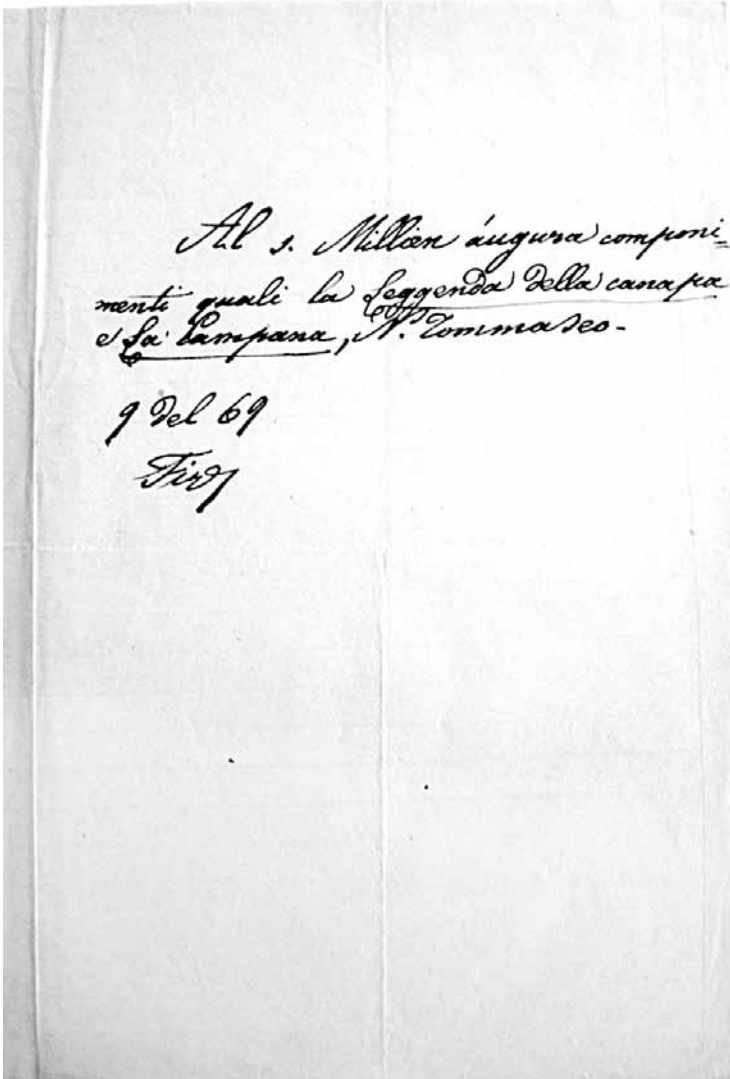 Al s. Millien áugura componi=
menti quali la Leggenda della canapa
e La Campana, N. Tommaseo-
9 del 69
Fir